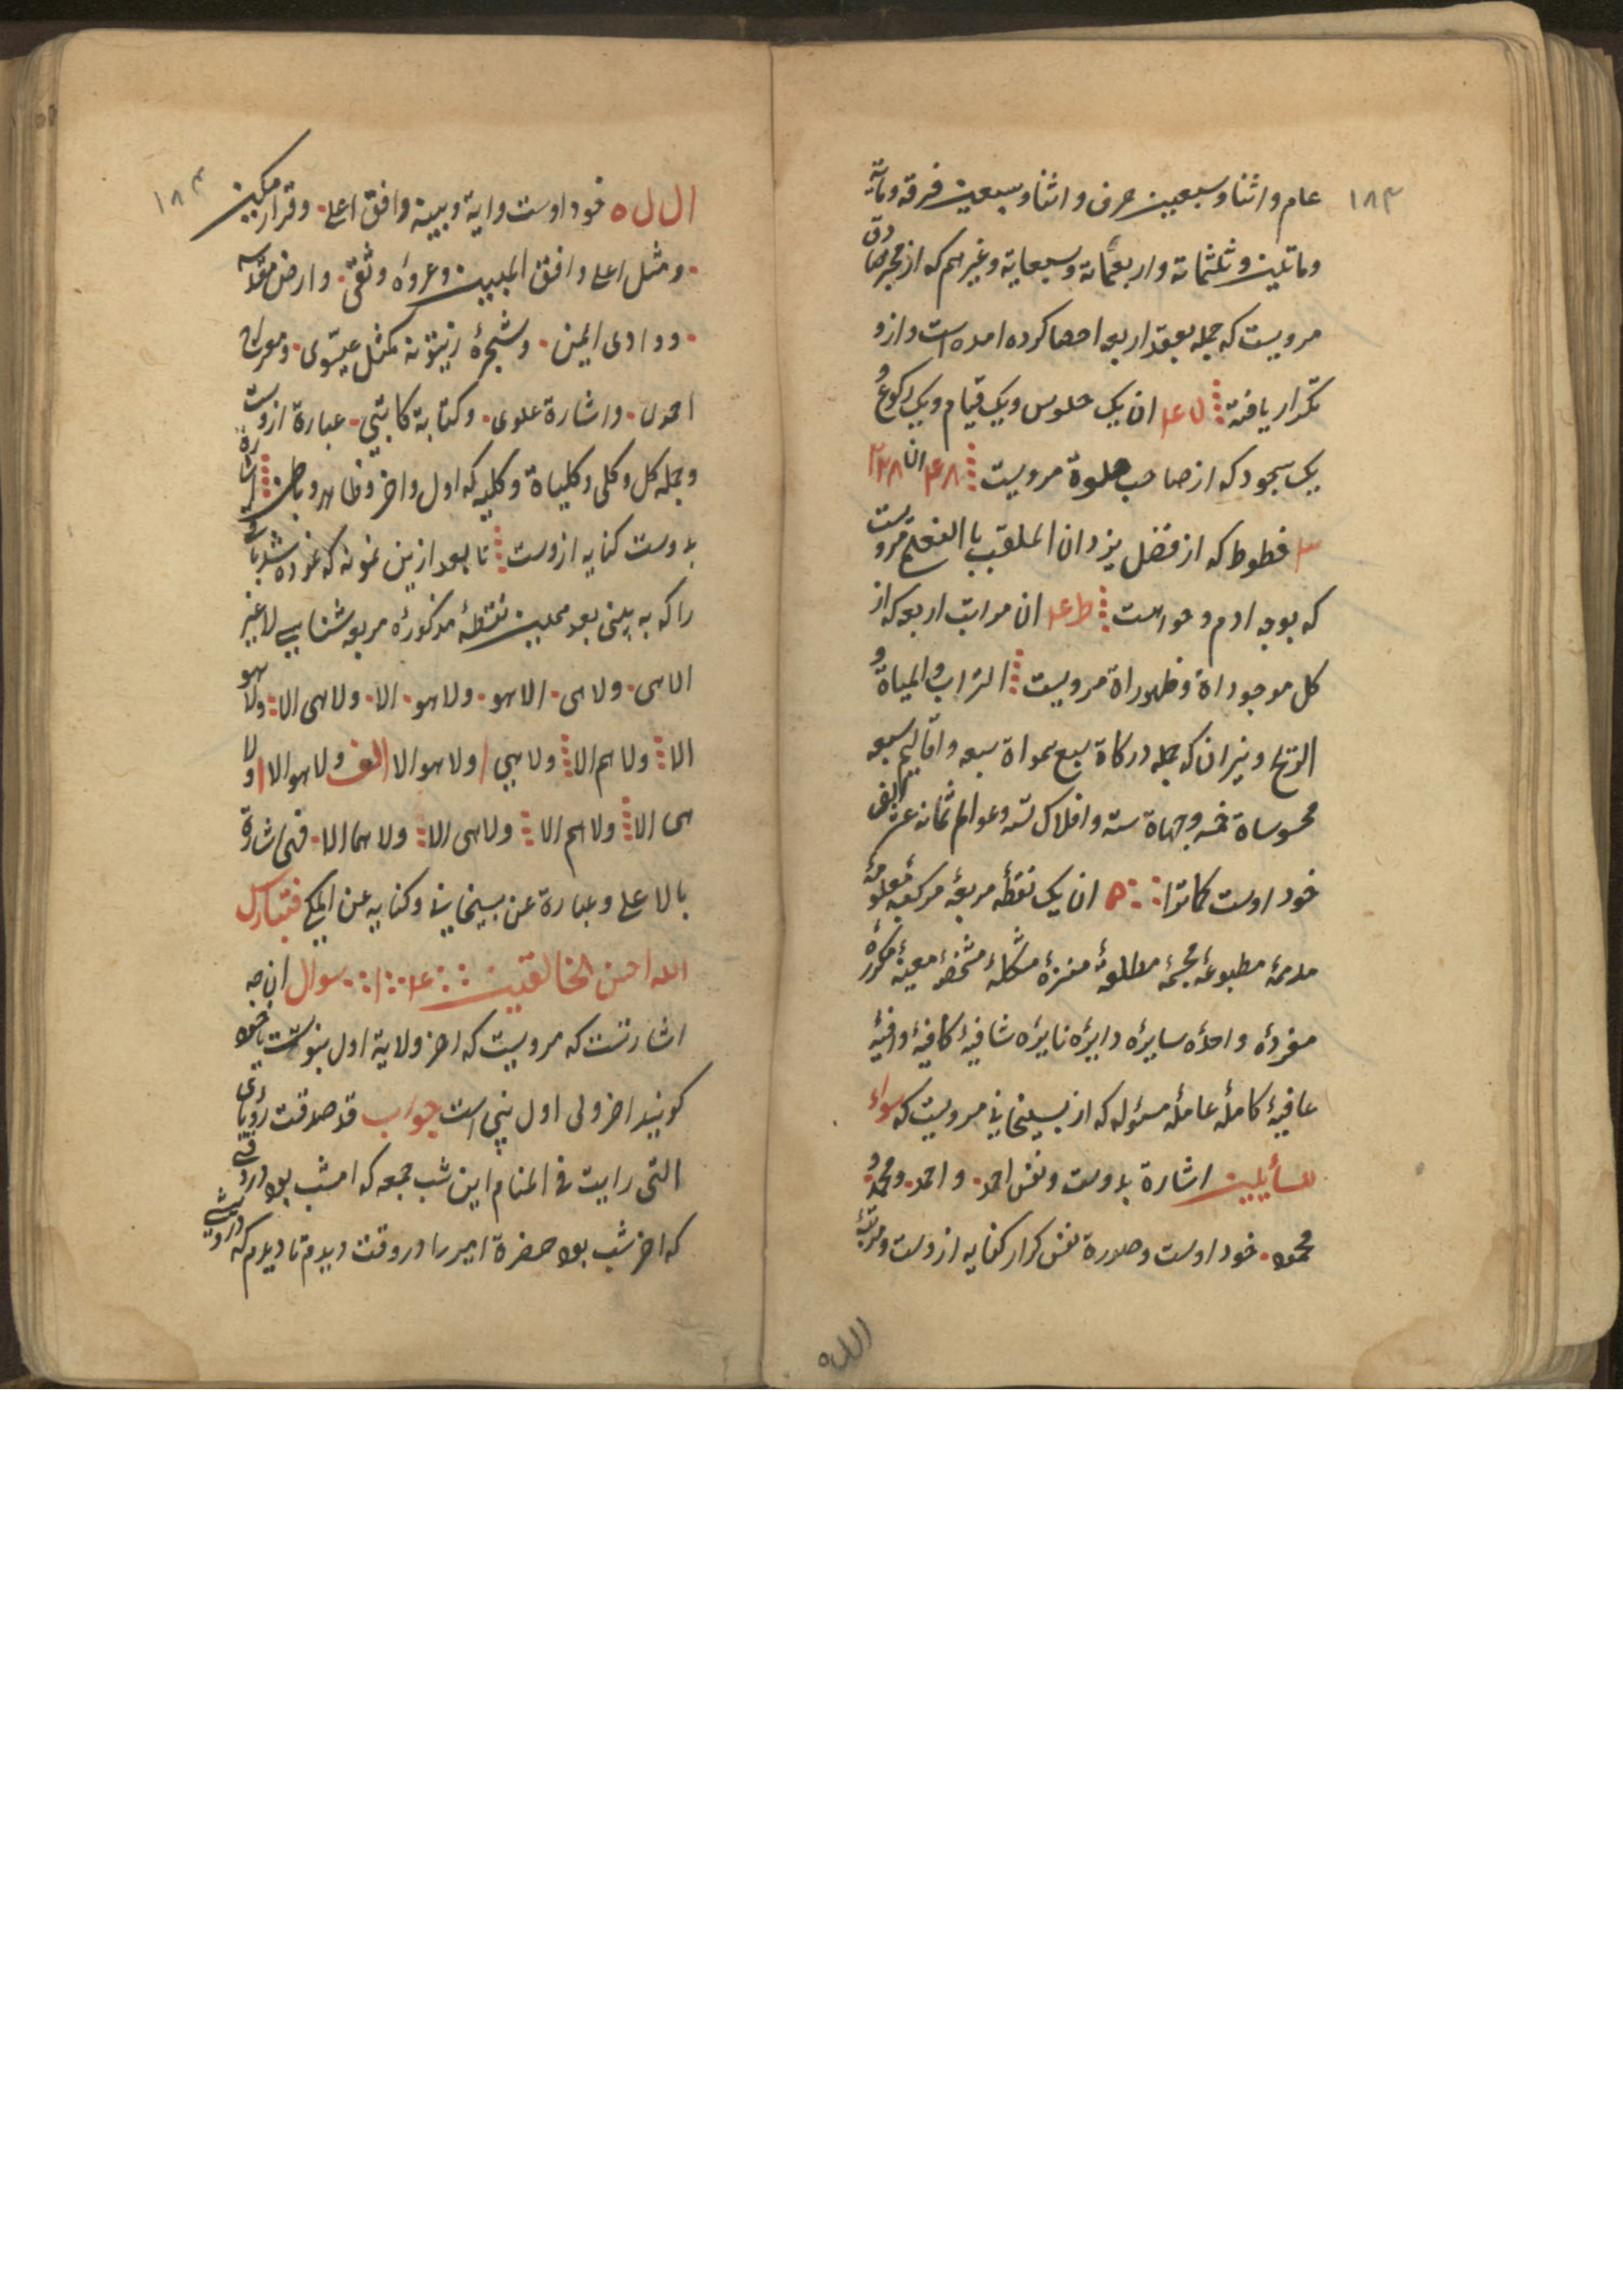 ۱۸۳
عام و اثنا و سبعین حرف و اثنا و سبعین فرقه و مائة
و ماتین و ثلثمائة و اربعمائة و سبعمایة و غیرهم که از مخبر صادق
مرویست که جمله بعقد اربعه احصا کرده امده است و ازو
تکرار یافته ان یک جلوس و یک قیام و یک رکوع و
یک سجود که از صاحب صلوة مرویست ان
خطوط که از فضل یزدان الملقب با مرویست
که بوجه ادم و حواست ان مراتب اربعه که از
کل موجوداة و ظهوراة مرویست التراب و المیاة و
الریح و نیران که جمله درکاة سبع سمواة سبعه و اقالیم سبعه
محسوساة خمسه و جهاة سته و افلاک تسه و عوالم ثمانه عشر الف
خود اوست کماترا ان یک نقطهٔ مربعهٔ معلومهٔ
مطبوعهٔ مشکلهٔ مشخصهٔ معینهٔ مکررهٔ
مفردهٔ واحدهٔ سایرهٔ دایرهٔ نایرهٔ شافیهٔ کافیهٔ وافیهٔ
عافیهٔ کاملهٔ عاملهٔ مسوله که از مرویست که سواء
للسأیلین اشارة بدوست و نفس احد و احمد و محمد و
محمود خود اوست و صورة نفس کرار کنایه ازوست و مرتبهٔ
الله
۱۸۴
ال ل ه خود اوست و ایة و بینه و افق اعلی و قرار مکین
و مثل اعلی و افق المبین و عروة وثقی و ارض مقدسه
و وادی ایمن و شجرهٔ زیتونه کمثل عیسوی و معراج
احمدی و اشارة علوی و کتابة کاتبی عبارة ازوست
و جمله کل و کلی و کلیاة و کلیه که اول و اخر و ظاهر و باطن اشارة
بدوست کنایه ازوست تا بعد ازین نمونه که نموده شد
را که به بینی بعد نقطهٔ مذکورهٔ مربعه شناسی لا غیر
الا هی و لا هی الا هو و لا هو الا و لا هی الا و لا هو
الا و لا هم الا و لا هی و لا هو الا الف و لا هو الا و لا
هی الا و لا هم الا و لا هی الا و لا هما الا فی اشارة
بالا علی و عبارة عن و کنایه عن فتبارک
الله احسن الخالقین سوال ان چه
اشارتست که مرویست که اخر ولایة اول نبوتست یا خود
کویند اخر ولی اول نبی است جواب قد صدقت رؤیای
التی رایت فی المنام این شب جمعه که امشب بود در وقتی
که اخر شب بود حضرة امیر را در وقت دیدم تا دیدم که درویشی